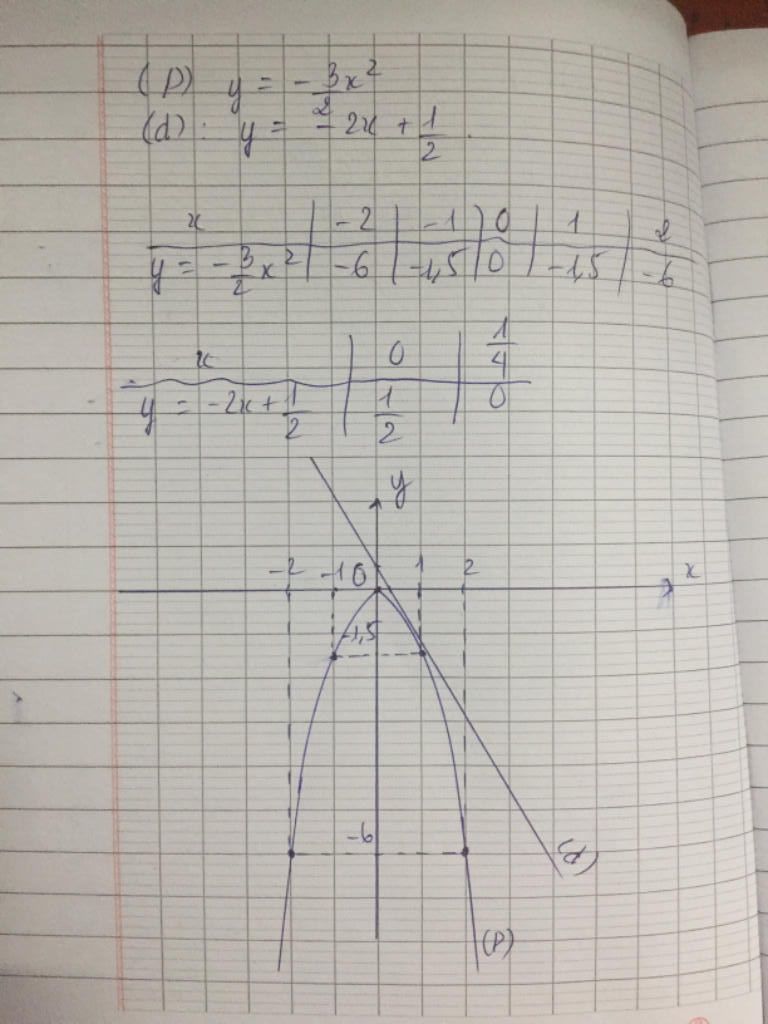 (P) y = -3/2x²
(d): y = -2x + 1/2.
x | -2 | -1 | 0 | 1 | 2
y = -3/2x² | -6 | -1,5 | 0 | -1,5 | -6
x | 0 | 1/4
y = -2x + 1/2 | 1/2 | 0
y
-2 -1 0 1 2 x
-1,5
-6
(d)
(P)